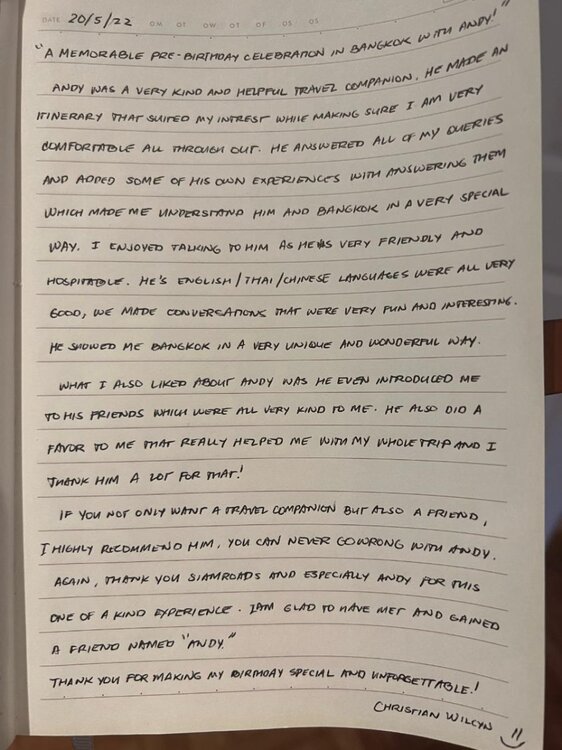 DATE 20/5/22 OM OT OW OT OF OS OS
"A MEMORABLE PRE-BIRTHDAY CELEBRATION IN BANGKOK WITH ANDY!"
ANDY WAS A VERY KIND AND HELPFUL TRAVEL COMPANION. HE MADE AN
ITINERARY THAT SUITED MY INTREST WHILE MAKING SURE I AM VERY
COMFORTABLE ALL THROUGH OUT. HE ANSWERED ALL OF MY QUERIES
AND ADDED SOME OF HIS OWN EXPERIENCES WITH ANSWERING THEM
WHICH MADE ME UNDERSTAND HIM AND BANGKOK IN A VERY SPECIAL
WAY. I ENJOYED TALKING TO HIM AS HE IS VERY FRIENDLY AND
HOSPITABLE. HE'S ENGLISH/THAI/CHINESE LANGUAGES WERE ALL VERY
GOOD, WE MADE CONVERSATIONS THAT WERE VERY FUN AND INTERESTING.
HE SHOWED ME BANGKOK IN A VERY UNIQUE AND WONDERFUL WAY.
WHAT I ALSO LIKED ABOUT ANDY WAS HE EVEN INTRODUCED ME
TO HIS FRIENDS WHICH WERE ALL VERY KIND TO ME. HE ALSO DID A
FAVOR TO ME THAT REALLY HELPED ME WITH MY WHOLE TRIP AND I
THANK HIM A LOT FOR THAT!
IF YOU NOT ONLY WANT A TRAVEL COMPANION BUT ALSO A FRIEND,
I HIGHLY RECOMMEND HIM, YOU CAN NEVER GO WRONG WITH ANDY.
AGAIN, THANK YOU SIAMROADS AND ESPECIALLY ANDY FOR THIS
ONE OF A KIND EXPERIENCE. I AM GLAD TO HAVE MET AND GAINED
A FRIEND NAMED "ANDY."
THANK YOU FOR MAKING MY BIRTHDAY SPECIAL AND UNFORGETTABLE!
CHRISTIAN WILCYN